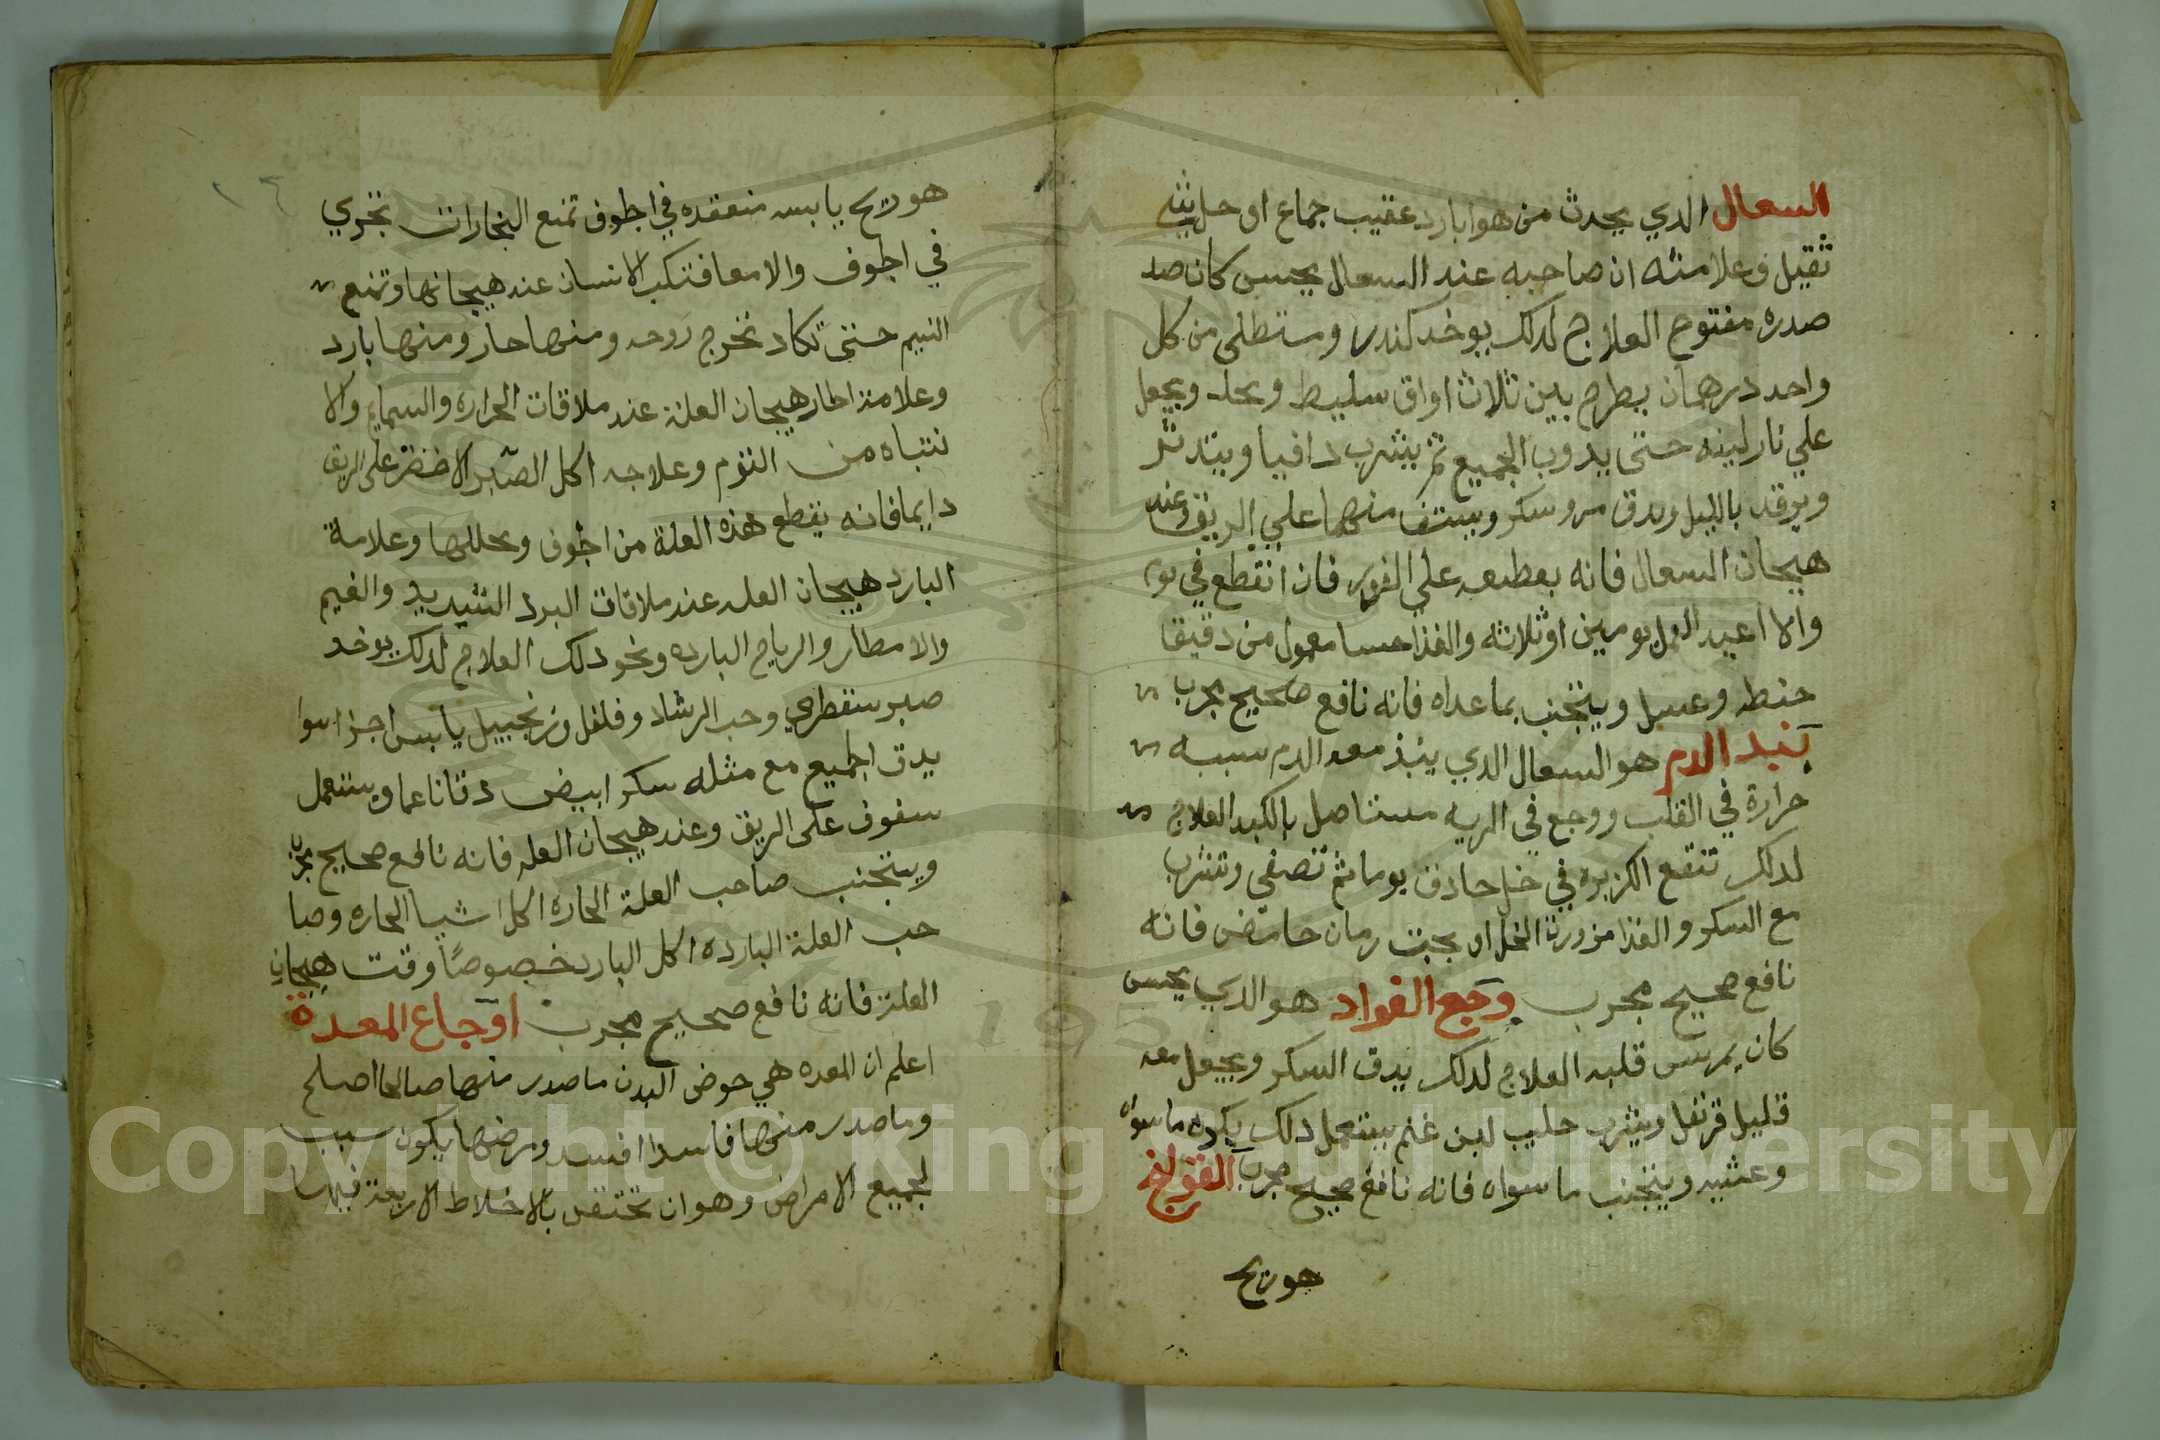 السعال الدي يحدث من هوا بارد عقيب جماع او حل شي
ثقيل وعلامته ان صاحبه عند السعال يحس كان صد
صدره مفتوح العلاج لدلك يوخد كندر ومستطكى من كل
واحد درهمان يطرح بين ثلاث اواق سليط ويحل ويجعل
علي نار لينه حتى يدوب الجميع ثم يشرب دافيا ويتدثر
ويرقد بالليل ويدق مر وسكر ويستف منهما علي الريق وعند
هيجان السعال فانه يقطعه علي الفور فان انقطع في يوم
والا اعيد العمل يومين او ثلاثه والغذا حسا معمول من دقيقا
حنطه وعسل ويتجنب بما عداه فانه نافع صحيح مجرب
نبد الدم هو السعال الدي ينبذ معه الدم سببه
حرارة في القلب ووجع في الريه مستاصل بالكبد العلاج
لدلك تنقع الكزبره في خل حادق يوما ثم تصفى وتشرب
مع السكر والغذا مزورة الخل او بحب رمان حامض فانه
نافع صحيح مجرب وجع الفواد هو الدي يحس
كان يمرس قلبه العلاج لدلك يدق السكر ويجعل معه
قليل قرنفل ويشرب حليب لبن غنم يستعمل دلك بكره
وعشيه ويتجنب ما سواه فانه نافع صحيح مجرب القولنج
هو ريح
هو ريح يابسه منعقده في الجوف تمنع البخارات تجري
في الجوف والامعا فتكب الانسان عند هيجانها وتمنع
النسيم حتى تكاد تخرج روحه ومنها حار ومنها بارد
وعلامة الحار هيجان العلة عند ملاقات الحراره والسمايم والا
نتباه من النوم وعلاجه اكل الصبر الاخضر على الريق
دايما فانه يقطع هذه العلة من الجوف ويحللها وعلامة
البارد هيجان العله عند ملاقات البرد الشديد والغيم
والامطار والرياح البارده ونحو دلك العلاج لدلك يوخد
صبر سقطري وحب الرشاد وفلفل وزنجبيل يابس اجزا سوا
يدق الجميع مع مثله سكر ابيض دقا ناعما ويستعمل
سفوف على الريق وعند هيجان العله فانه نافع صحيح مجرب
ويتجنب صاحب العلة الحاره اكل اشيا الحاره وصا
حب العلة البارده اكل البارد خصوصًا وقت هيجان
العلة فانه نافع صحيح مجرب اوجاع المعدة
اعلم ان المعده هي حوض البدن ما صدر منها صالحا اصلح
وما صدر منها فاسدا افسد ومرضها يكون سبب
لجميع الامراض وهو ان تحتقن بالاخلاط الاربعة فيها
Copyright © King Saud University